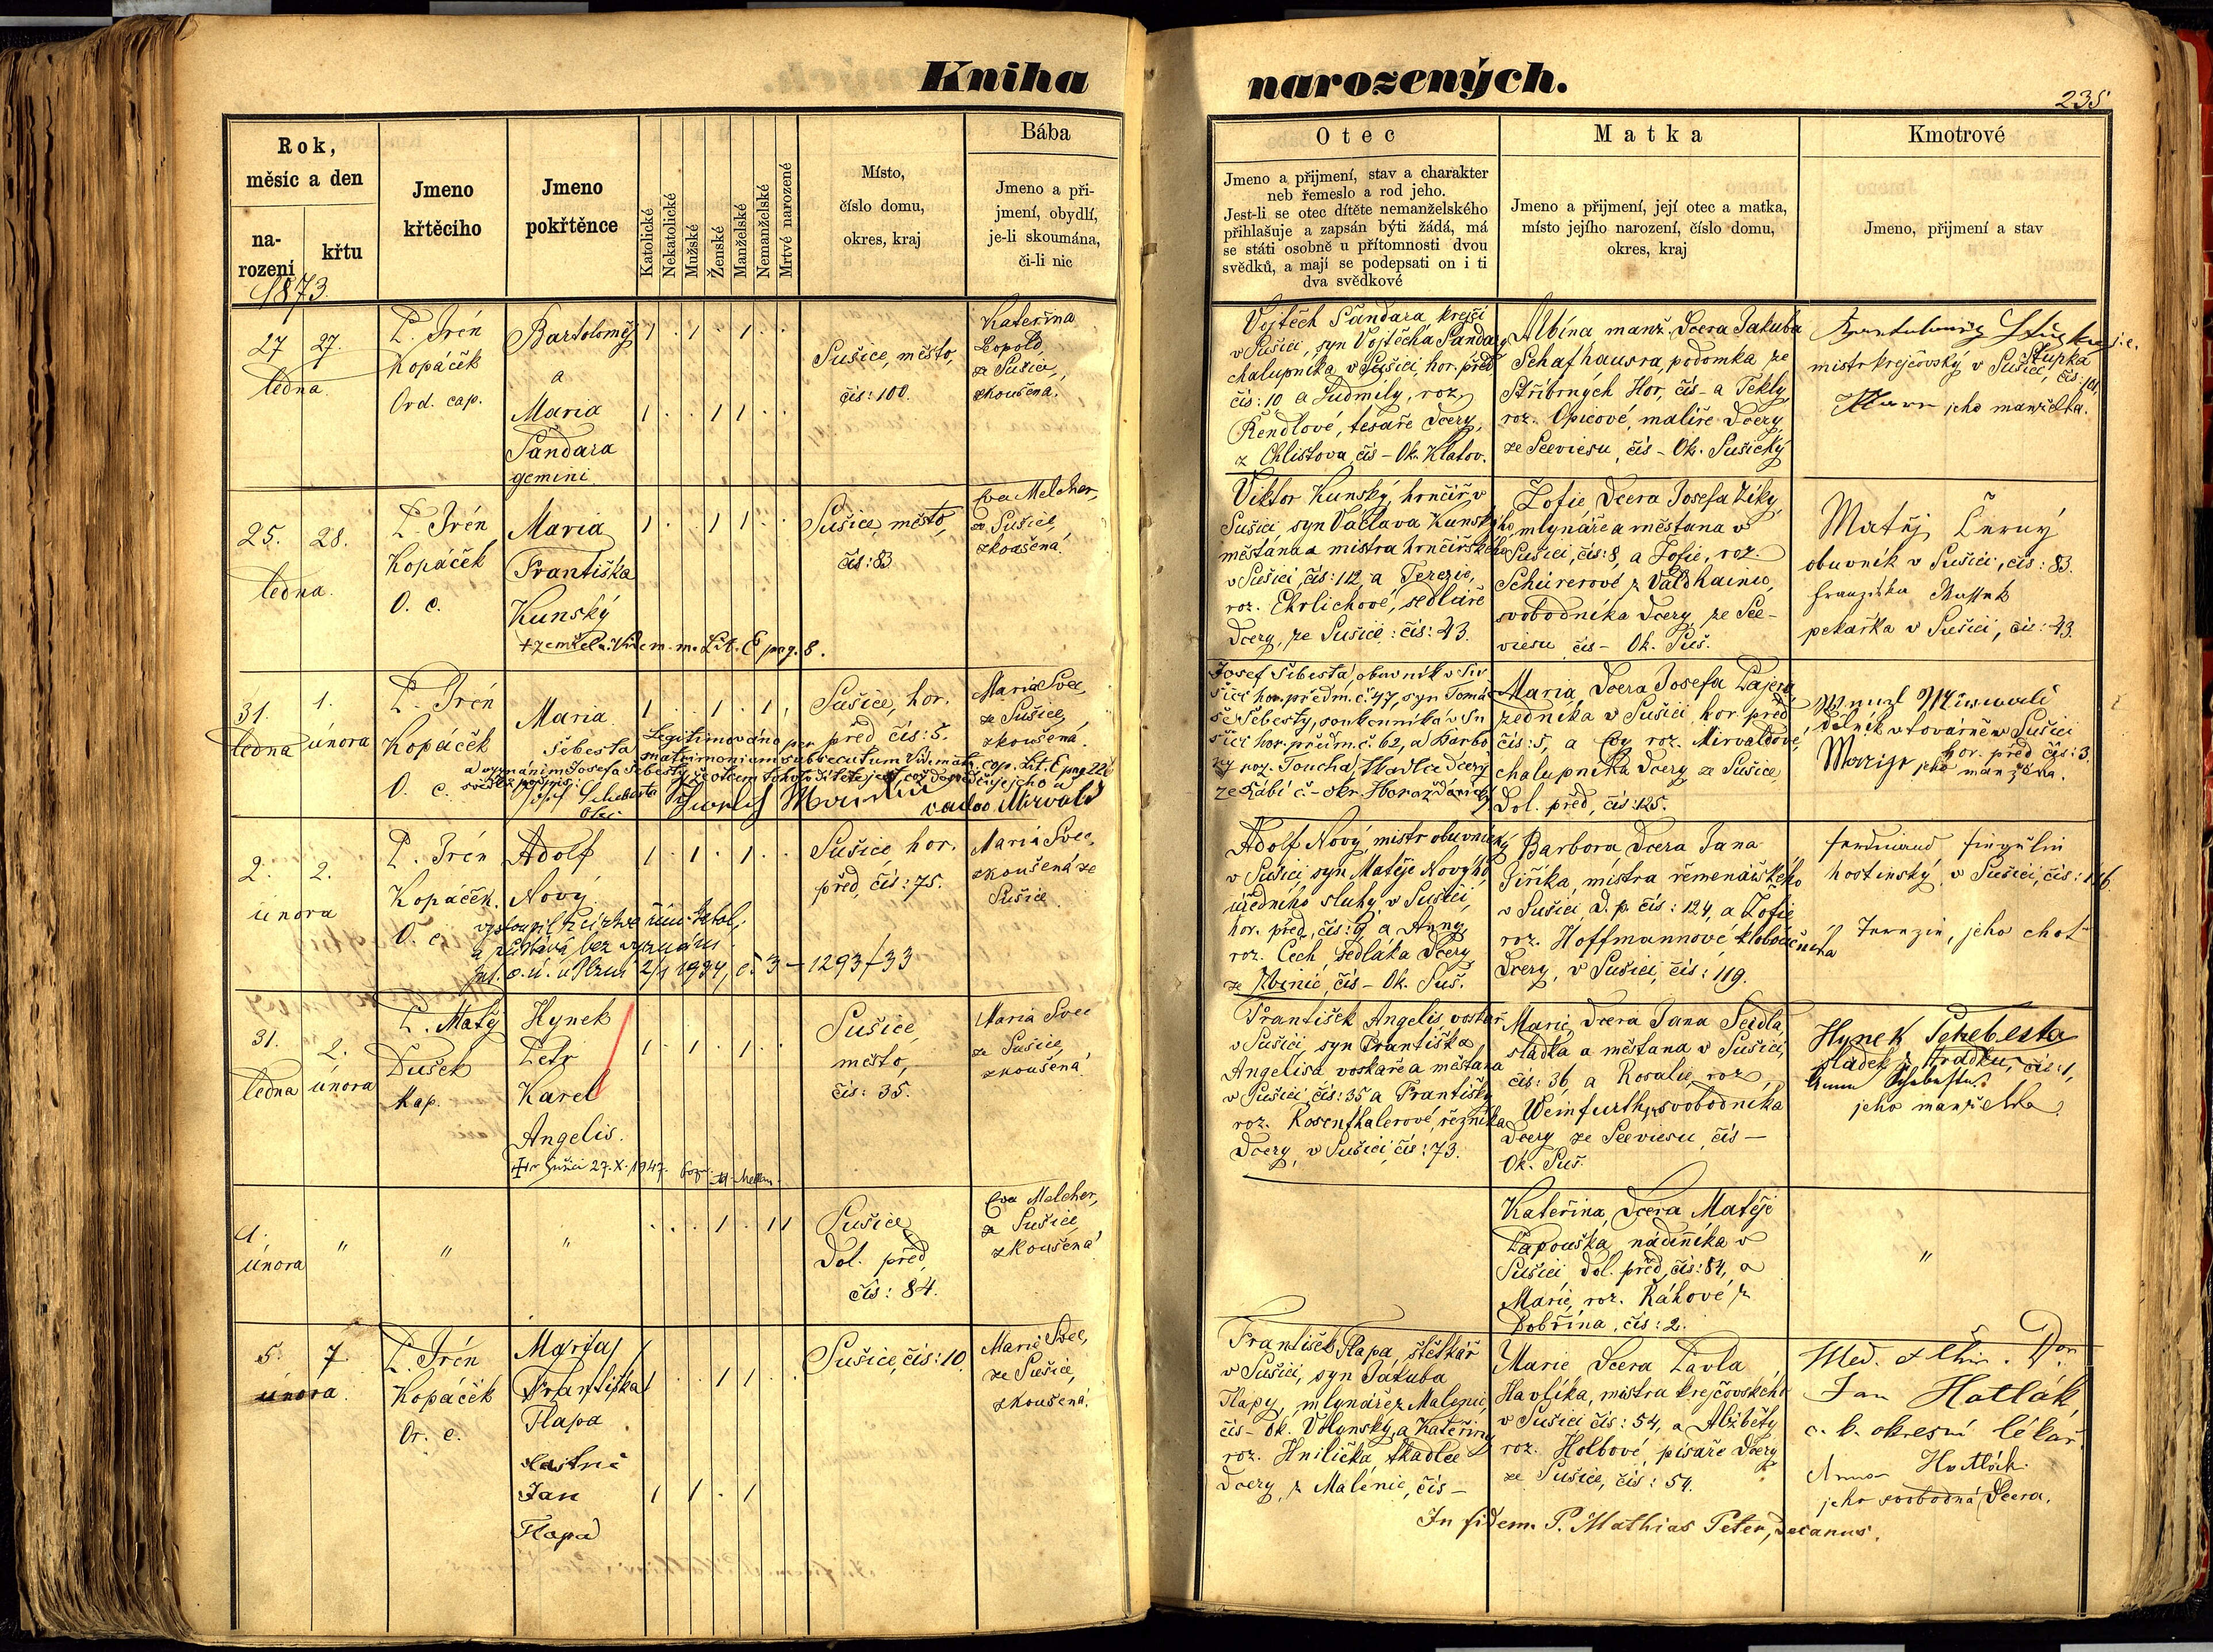 Kniha narozených.
235
Rok,
měsíc a den
na-
rození
křtu
1873.
Jmeno
křtěcího
Jmeno
pokřtěnce
Katolické
Nekatolické
Mužské
Ženské
Manželské
Nemanželské
Mrtvě narozené
Místo,
číslo domu,
okres, kraj
Bába
Jmeno a pří-
jmení, obydlí,
je-li skoumána,
či-li nic
Otec
Jmeno a přijmení, stav a charakter
neb řemeslo a rod jeho.
Jest-li se otec dítěte nemanželského
přihlašuje a zapsán býti žádá, má
se státi osobně u přítomnosti dvou
svědků, a mají se podepsati on i ti
dva svědkové
Matka
Jmeno a přijmení, její otec a matka,
místo jejího narození, číslo domu,
okres, kraj
Kmotrové
Jmeno, přijmení a stav
27 27.
ledna
P. Irén
Kopáček
Ord. cap.
Bartoloměj
a
Maria
Šandara
gemini
Sušice, město,
čís: 100.
Kateřina
Leopold
ze Sušice,
zkoušena.
Vojtěch Šandara, krejčí
v Sušici, syn Vojtěcha Šandary
chalupníka v Sušici, hor. před
čís: 10 a Ludmily, roz.
Rendlové, tesaře dcery,
z Chlistova, čís – Ok. Klatov.
Albína manž. dcera Jakuba
Schafhausra, podomka, ze
Stříbrných Hor, čís – a Tekly,
roz. Opicové, malíře dcery,
ze Seeviesu, čís – Ok. Sušický
Stupka
mistr krejčovský v Sušici, čís: 101.
jeho manželka.
25. 28.
ledna.
P. Irén
Kopáček
O. c.
Maria
Františka
Kunský
Lit. E pag. 8.
Sušice, město,
čís: 83
Eva Melcher,
ze Sušice,
zkoušená.
Viktor Kunský, hrnčíř v
Sušici, syn Václava Kunského
měšťana a mistra hrnčířského
v Sušici, čís: 112, a Terezie,
roz. Ehrlichové, sedláře
dcery, ze Sušice: čís: 43.
Žofie dcera Josefa Ziky,
mlynáře a měšťana v
Sušici, čís: 8, a Žofie, roz.
Schürerové z Valdhainu,
svobodníka dcery, ze See-
viesu čís – Ok. Suš.
Matěj Černý
obuvník v Sušici, čís: 83.
pekařka v Sušici, čís: 43.
31. 1.
ledna února
P. Irén
Kopáček
O. c.
Maria
Šebesta
Legitimováno per
matrimonium subsecutum
otec
Sušice, hor.
před čís: 5.
Maria Švec,
ze Sušice,
zkoušená.
Josef Šebesta, obuvník v Su-
šici hor. předm. č. 47, syn Tomá-
še Šebesty, v Su-
šici hor. předm. č. 62, a Barbo-
ry roz. Toucha, tkadlce dcery
Maria, dcera Josefa Pajera,
zedníka v Sušici hor. před
čís: 5, a Evy roz. Mirvaldové,
chalupníka dcery ze Sušice
Dol. před, čís: 125.
dělník v továrně v Sušici
hor. před čís: 3.
jeho manželka.
2. 2.
února
P. Irén
Kopáček.
O. c.
Adolf
Nový
vystoupil z církve řím. katol.
a zůstává bez vyznání
1293/33
Sušice, hor.
před, čís: 75.
Maria Švec,
zkoušená ze
Sušice.
Adolf Nový, mistr obuvnický
v Sušici, syn Matěje Nového,
úředního sluhy v Sušici,
hor. před, čís: 9, a Anny,
roz. Čech, sedláka dcery,
ze Kbinic, čís – Ok. Suš.
Barbora dcera Jana
Jiříka, mistra řemenářského
v Sušici, d. p. čís: 124, a Žofie
roz. Hoffmannové kloboučníka
dcery, v Sušici, čís: 119.
hostinský v Sušici, čís: 116.
jeho choť
31. 2.
ledna února
P. Matěj
Dušek
Kap.
Hynek
Petr
Karel
Angelis.
v Sušici 27. X. 1947.
Sušice,
město,
čís: 35.
Maria Švec
ze Sušice,
zkoušená.
František Angelis, voskař
v Sušici, syn Františka
Angelisa voskaře a měšťana
v Sušici, čís: 35 a Františky
roz. Rosenthalerové, řezníka
dcery, v Sušici, čís: 73.
Marie, dcera Jana Seidla,
sládka a měšťana v Sušici,
čís: 36, a Rosalie, roz.
Weinfurth, svobodníka
dcery ze Seeviesu, čís –
Ok. Suš.
Hynek Schebesta
sládek z Hrádku, čís: 1,
jeho manželka
1.
února
" " "
Sušice
Dol. před
čís: 84.
Eva Melcher,
ze Sušice
zkoušená
Kateřina, dcera Matěje
Papouška, nádeníka v
Sušici, dol. před, čís: 84, a
Marie, roz. Rákové z
Dobřína, čís: 2.
"
5. 7.
února.
P. Irén
Kopáček
Or. c.
Maria
Františka
Tlapa
vlastně
Jan
Tlapa
Sušice, čís: 10.
Marie Švec,
ze Sušice,
zkoušená.
František Tlapa, štětkář
v Sušici, syn Jakuba
Tlapy, mlynáře z Malenic,
čís – Ok. Volynský, a Kateřiny
roz. Hnilička, tkadlce
dcery, z Malenic, čís –
Marie dcera Pavla
Havlíka, mistra krejčovského
v Sušici čís: 54, a Alžběty
roz. Holbové, písaře dcery
ze Sušice, čís: 54.
Med. & Chir. Dor.
Jan Hatlák,
c. k. okresní lékař.
Anna Hatlák
jeho svobodná dcera.
In fidem P. Mathias Peter, decanus.